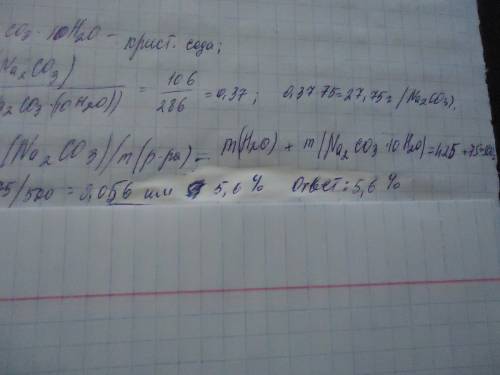 CO3·10H2O - крист. сода;
Na2CO3) / 2CO3·10H2O)) = 106/286 = 0,37; 0,37·75=27,75г (Na2CO3).
(Na2CO3)/m(р-ра) = m(H2O) + m(Na2CO3·10H2O)=425+75=
75/500 = 0,056 или 5,6% Ответ: 5,6%